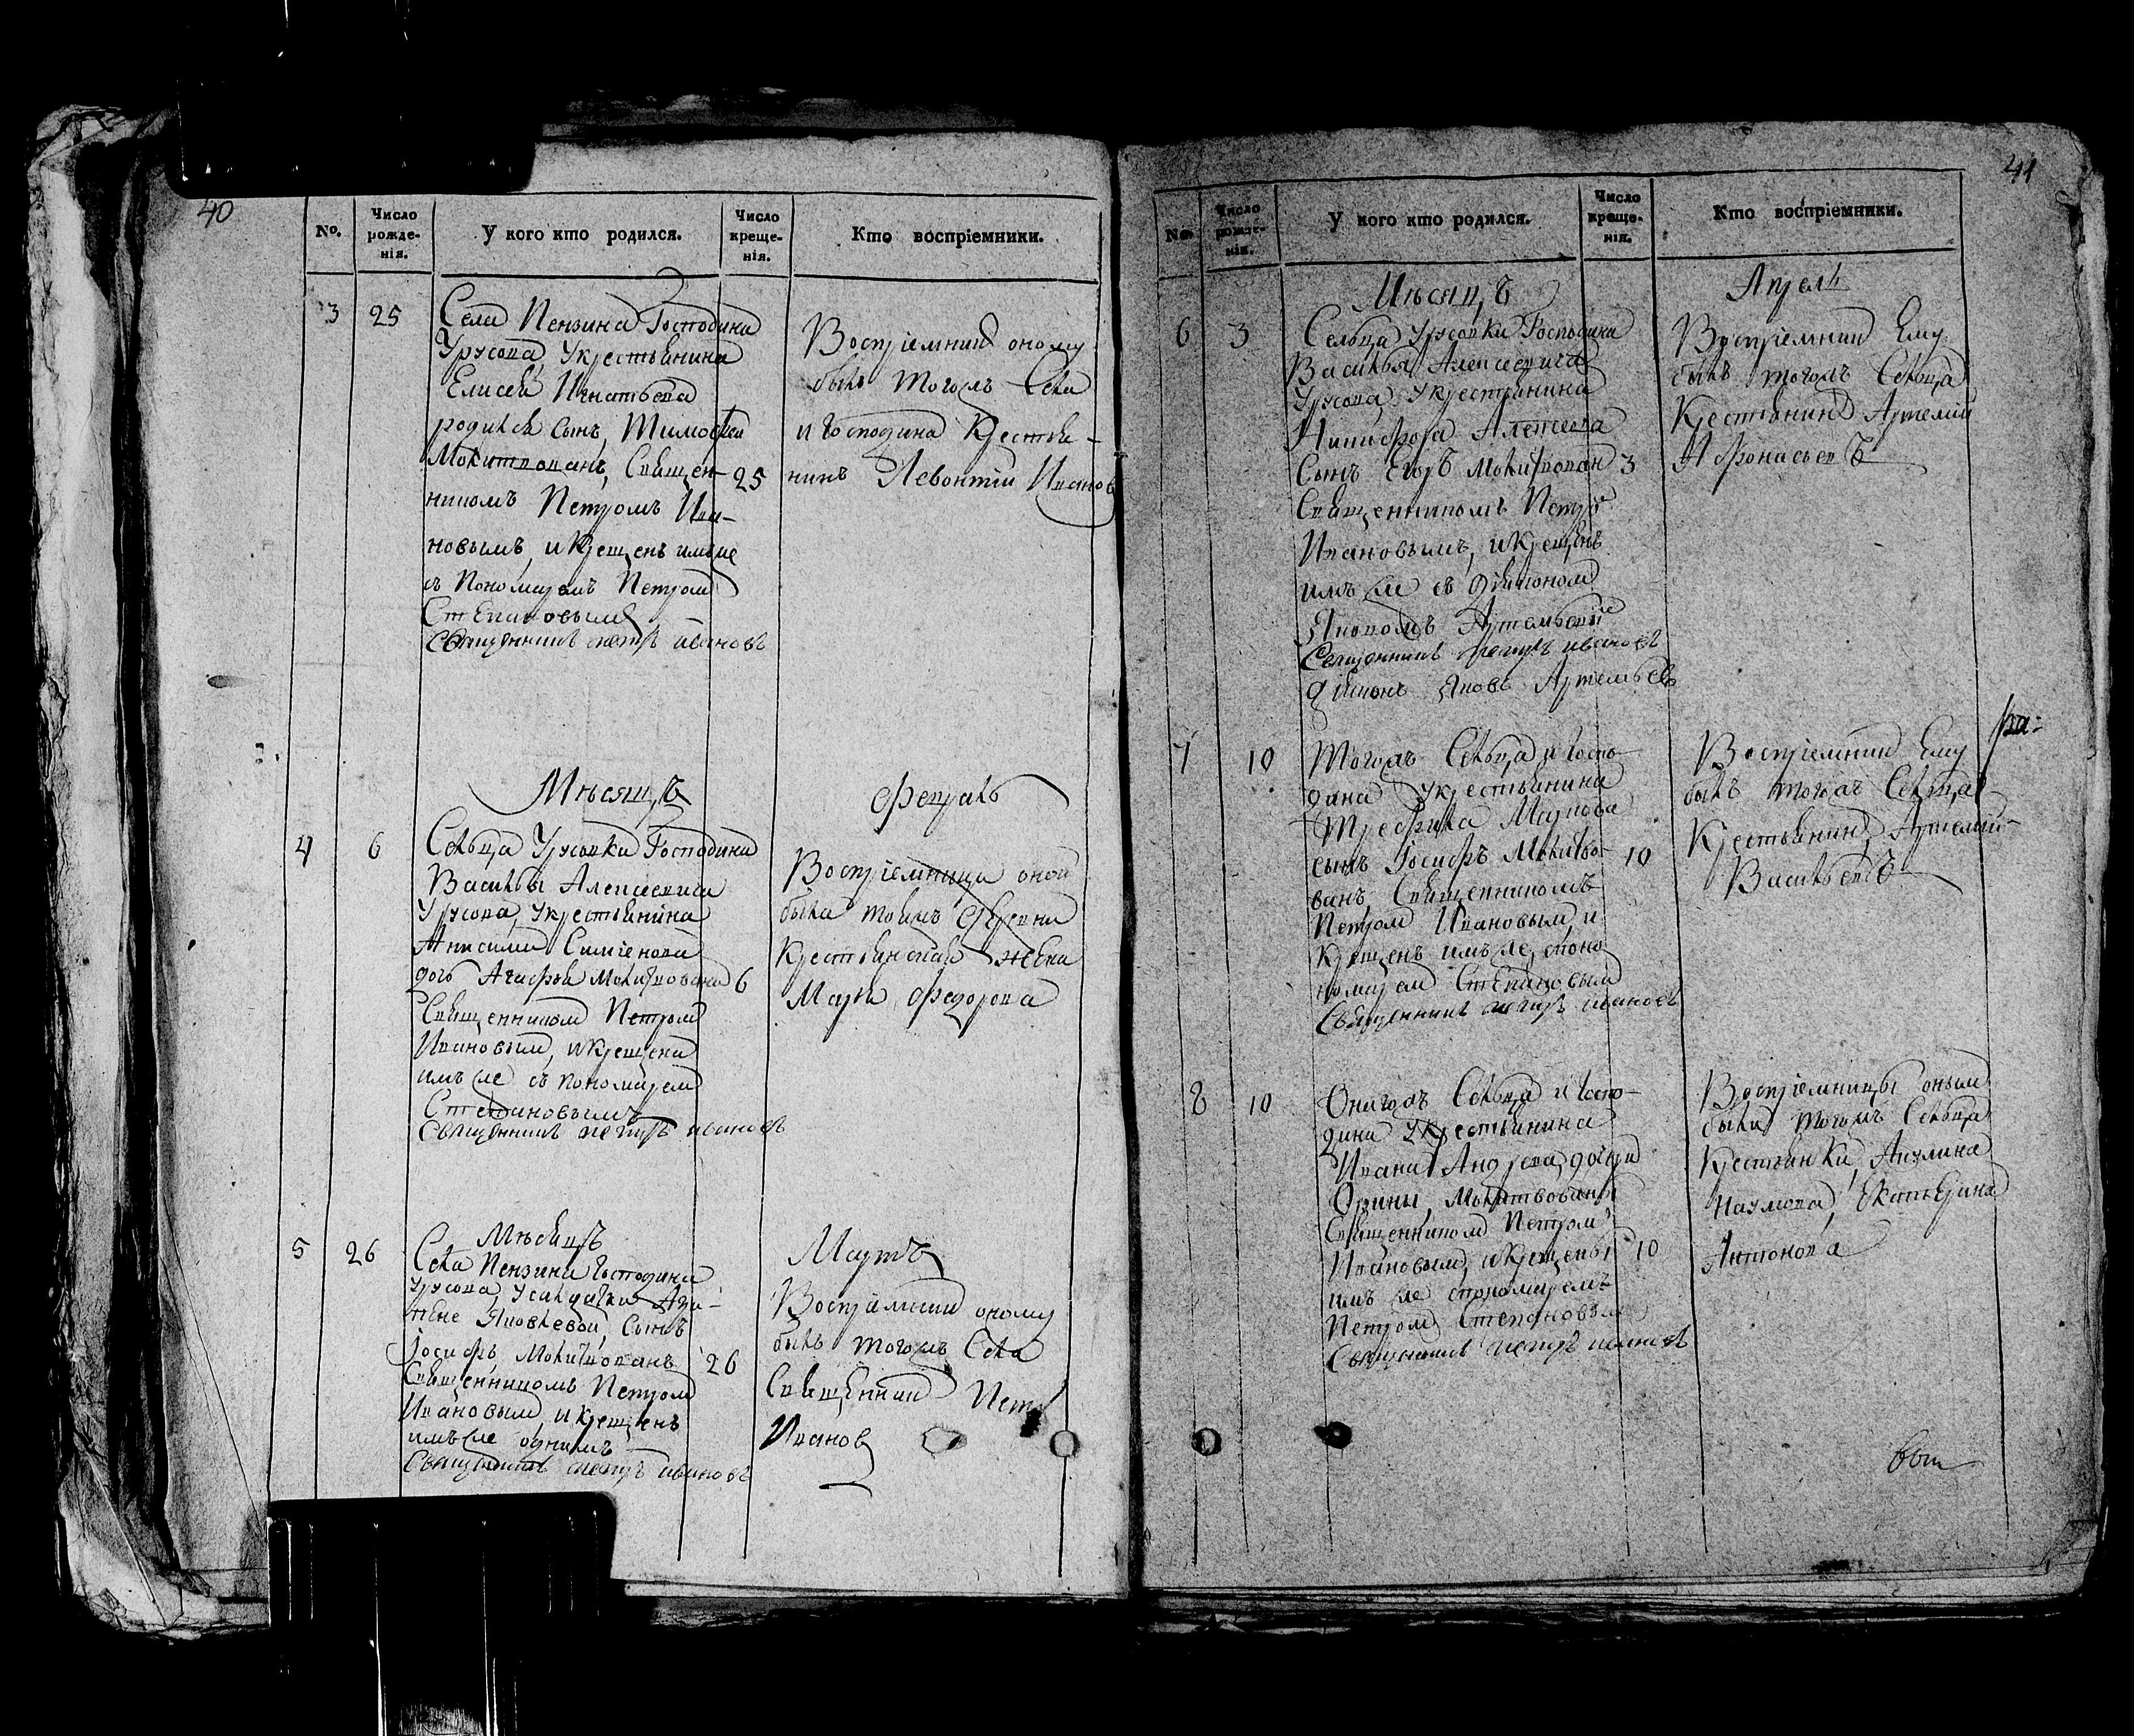 40
№.
Число рожде-нія.
У кого кто родился.
Число креще-нія.
Кто воспріемники.
3 25
Села Пензина Господина
Урусова, Укрестьянина
Елисея Игнатьева
родился сынъ, Тимофей
Молитвованъ, Священ-
никомъ Петромъ Ива-
новымъ, и Крещенъ имъже
съ Пономаремъ Петром
Степановым
Священникъ петръ ивановъ
25
Воспріемник оному
былъ тогожъ Села
и Господина Крестья-
нинъ Левонтій Иванов
Мѣсяцъ Февраль
4 6
Сельца Урусовки Господина
Василья Алексеевича
Урусова, Укрестьянина
Анисима Симіонова
дочь Агафья Молитвована
Священником Петром
Ивановым, и Крещена
имъ же съ пономарем
Степановымъ
Священникъ петръ ивановъ
6
Воспріемница оной
была тояжъ деревни
Крестьянская жена
Марья Федорова
Мѣсяцъ Мартъ
5 26
Села Пензина Господина
Урусова, Усалдатки
Яковлевой, Сынъ
Іосифъ, Молитвованъ
Священникомъ Петром
Ивановым, и Крещенъ
имъ же однимъ
Священникъ петръ ивановъ
26
Воспріемник оному
былъ тогожъ Села
Священник Петр
Иванов
41
№.
Число рожде-нія.
У кого кто родился.
Число креще-нія.
Кто воспріемники.
Мѣсяцъ Апрель
6 3
Сельца Урусовки Господина
Василья Алексеевича
Урусова, Укрестьянина
Никифора Алексеева
Сынъ Егоръ Молитвован
Священникомъ Петро
Ивановымъ, и Крещенъ
имъ же съ Дьяконом
Яковомъ Артемьевы
Священникъ петръ ивановъ
Дьяконъ Яковъ Артемьевъ
3
Воспріемник Ему
былъ тогожъ Сельца
Крестьянин Артемій
Афонасьевъ
7 10
Тогожъ Сельца и Госпо-
дина Укрестьянина
Трефила Маркова
сынъ Іосифъ Молитво-
ванъ Священникомъ
Петром Ивановым, и
Крещенъ имъ же, споно
марем Степановым
Священникъ петръ ивановъ
10
Воспріемник Ему
былъ тогожъ Сельца
Крестьянин Артемій
Васильевъ
ра:
8 10
Оногожъ Сельца и Госпо-
дина Укрестьянина
Ивана Андреева, дочери
Орины, Молитвованы
Священником Петром
Ивановым, и Крещены
имъ же спономаремъ
Петром Степановым
Священникъ петръ ивановъ
10
Воспріемницы оным
были тогожъ Сельца
Крестьянки, Акулина
Наумова, Екатерина
Антонова